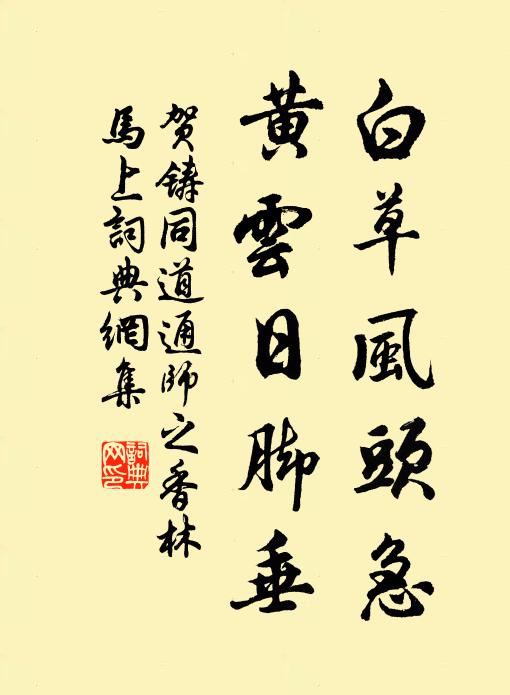 白草風頭急
黃雲日脚垂
贺鑄同道通師之香林
馬上詞典網集
詞典
网印